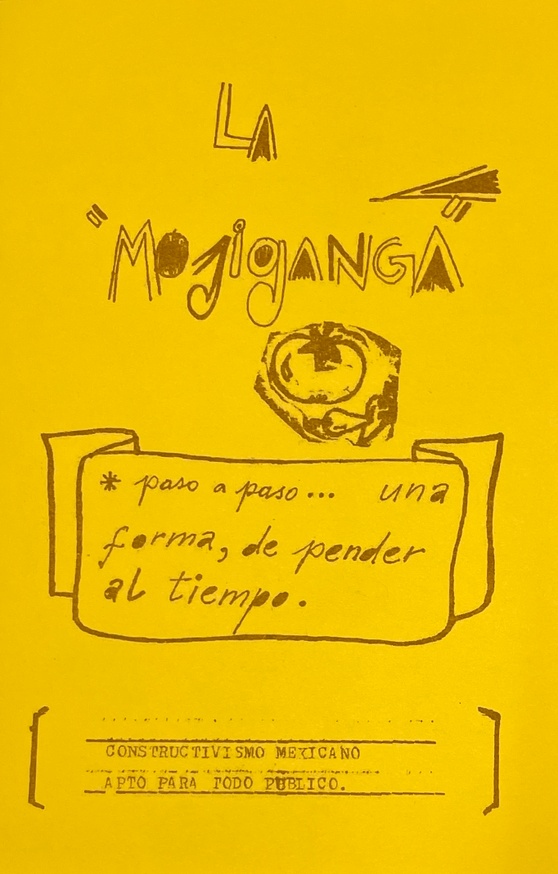 LA
"MOJIGANGA"
* paso a paso... una
forma, de pender
al tiempo.
CONSTRUCTIVISMO MEXICANO
APTO PARA TODO PUBLICO.